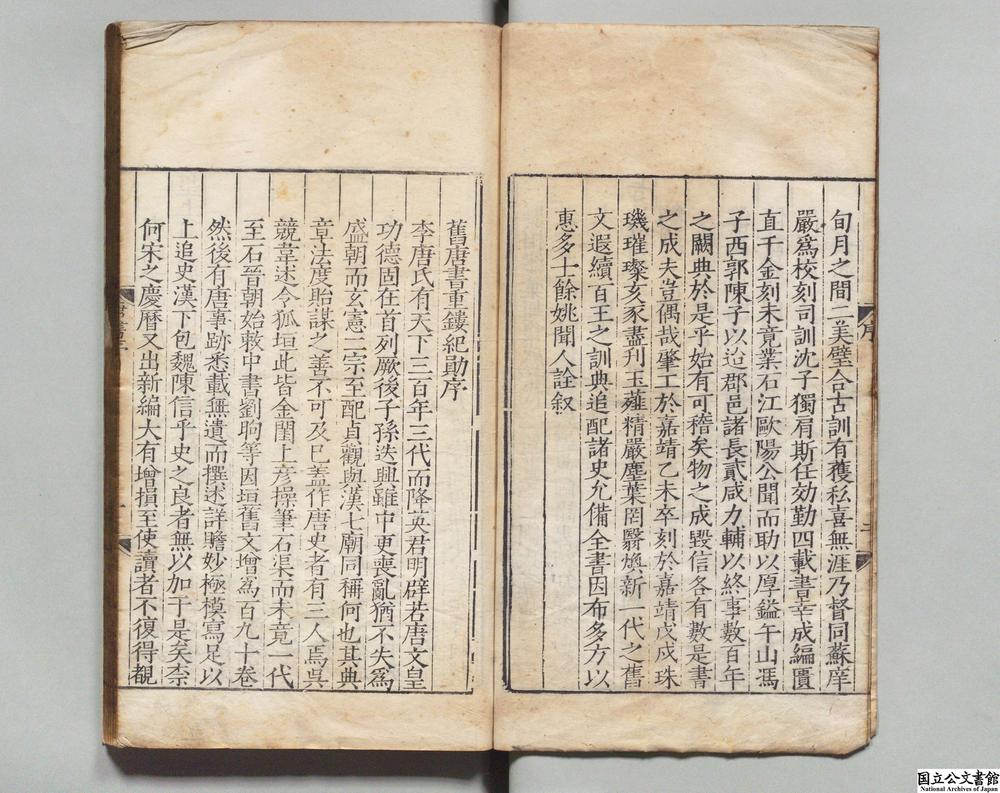 旬月之間二美璧合古訓有獲私喜無涯乃督同蘇庠
嚴爲校刻司訓沈子獨肩斯任効勤四載書幸成編匱
直千金刻未竟業石江歐陽公聞而助以厚鎰午山馮
子西郭陳子以迨郡邑諸長貳咸力輔以終事數百年
之闕典於是乎始有可稽矣物之成毀信各有數是書
之成夫豈偶哉肇工於嘉靖乙未卒刻於嘉靖戊戌珠
璣璀璨亥豕盡刋玉薤精嚴塵葉罔翳煥新一代之舊
文遐續百王之訓典追配諸史允備全書因布多方以
惠多士餘姚聞人詮叙
舊唐書重鏤紀勛序
李唐氏有天下三百年三代而降英君明辟若唐文皇
功德固在首列厥後子孫迭興雖中更喪亂猶不失爲
盛朝而玄憲二宗至配貞觀與漢七廟同稱何也其典
章法度貽謀之善不可及已蓋作唐史者有三人焉吳
競韋述令狐垣此皆金閨上彥操筆石渠而未竟一代
至石晉朝始敕中書劉昫等因垣舊文增爲百九十卷
然後有唐事跡悉載無遺而撰述詳贍妙極模寫足以
上追史漢下包魏陳信乎史之良者無以加于是矣柰
何宋之慶曆又出新編大有增損至使讀者不復得覩
国立公文書館
National Archives of Japan